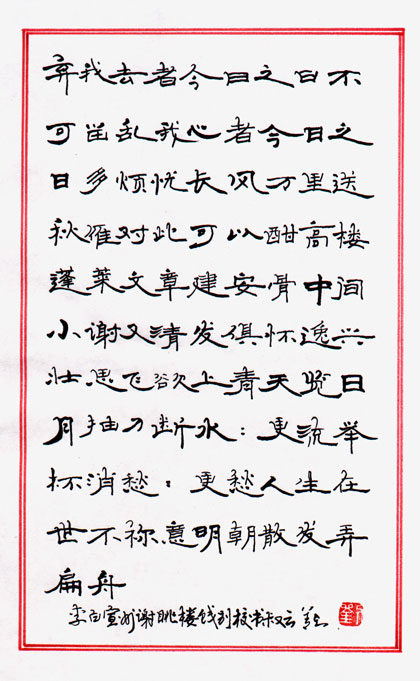 弃我去者今日之日不
可留乱我心者今日之
日多烦忧长风万里送
秋雁对此可以酣高楼
蓬莱文章建安骨中间
小谢又清发俱怀逸兴
壮思飞欲上青天览日
月抽刀断水：更流举
杯消愁：更愁人生在
世不称意明朝散发弄
扁舟
李白宣州谢眺楼饯别校书叔云